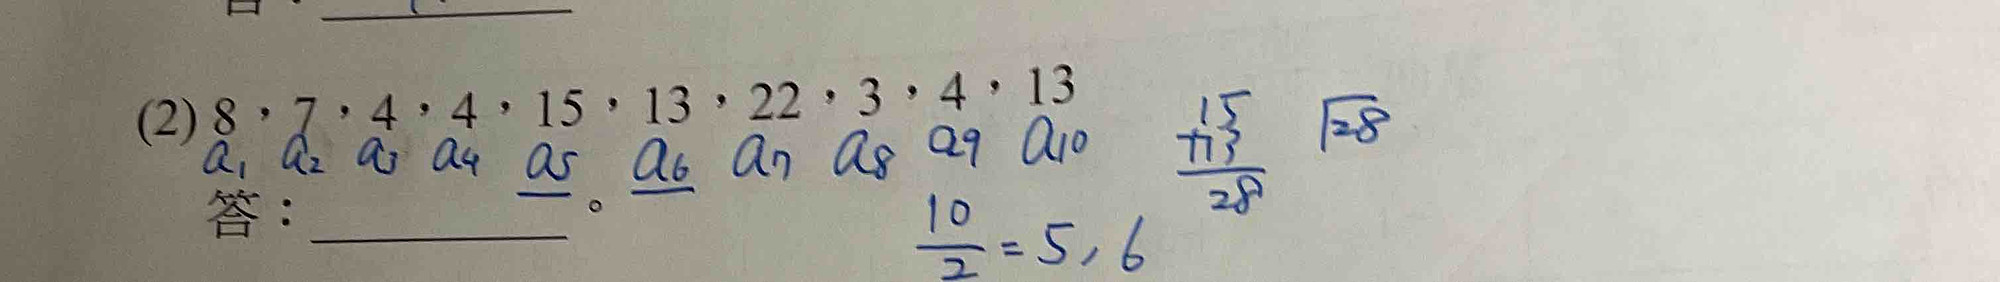 (2) 8，7，4，4，15，13，22，3，4，13
a1 a2 a3 a4 a5 a6 a7 a8 a9 a10
答：＿＿＿＿＿。
15
+13
28
28
10/2 = 5, 6